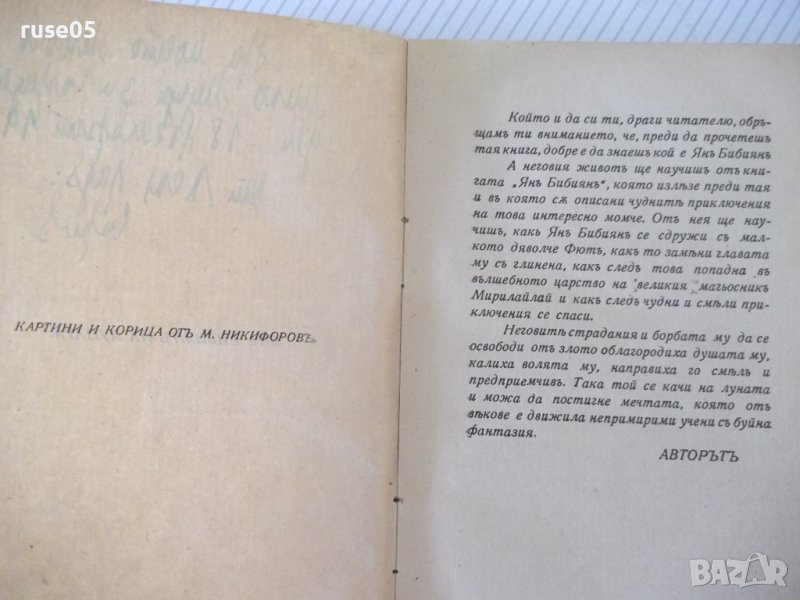 ruse05
КАРТИНИ И КОРИЦА ОТЪ М. НИКИФОРОВЪ
Който и да си ти, драги читателю, обръ-
щамъ ти вниманието, че, преди да прочетешъ
тая книга, добре е да знаешъ кой е Янъ Бибиянъ
А неговия животъ ще научишъ отъ кни-
гата „Янъ Бибиянъ“, която излѣзе преди тая
и въ която сѫ описани чуднитѣ приключения
на това интересно момче. Отъ нея ще нау-
чишъ, какъ Янъ Бибиянъ се сдружи съ мал-
кото дяволче Фютъ, какъ то замѣни главата
му съ глинена, какъ следъ това попадна въ
вълшебното царство на великия магьосник
Мирилайлай и какъ следъ чудни и смѣли при-
ключения се спаси.
Неговитѣ страдания и борбата му да се
освободи отъ злото облагородиха душата му,
калиха волята му, направиха го смѣлъ и
предприемчивъ. Така той се качи на луната
и можа да постигне мечтата, която отъ
вѣкове е движила непримирими учени съ буйна
фантазия.
АВТОРЪТЪ
BAZAR